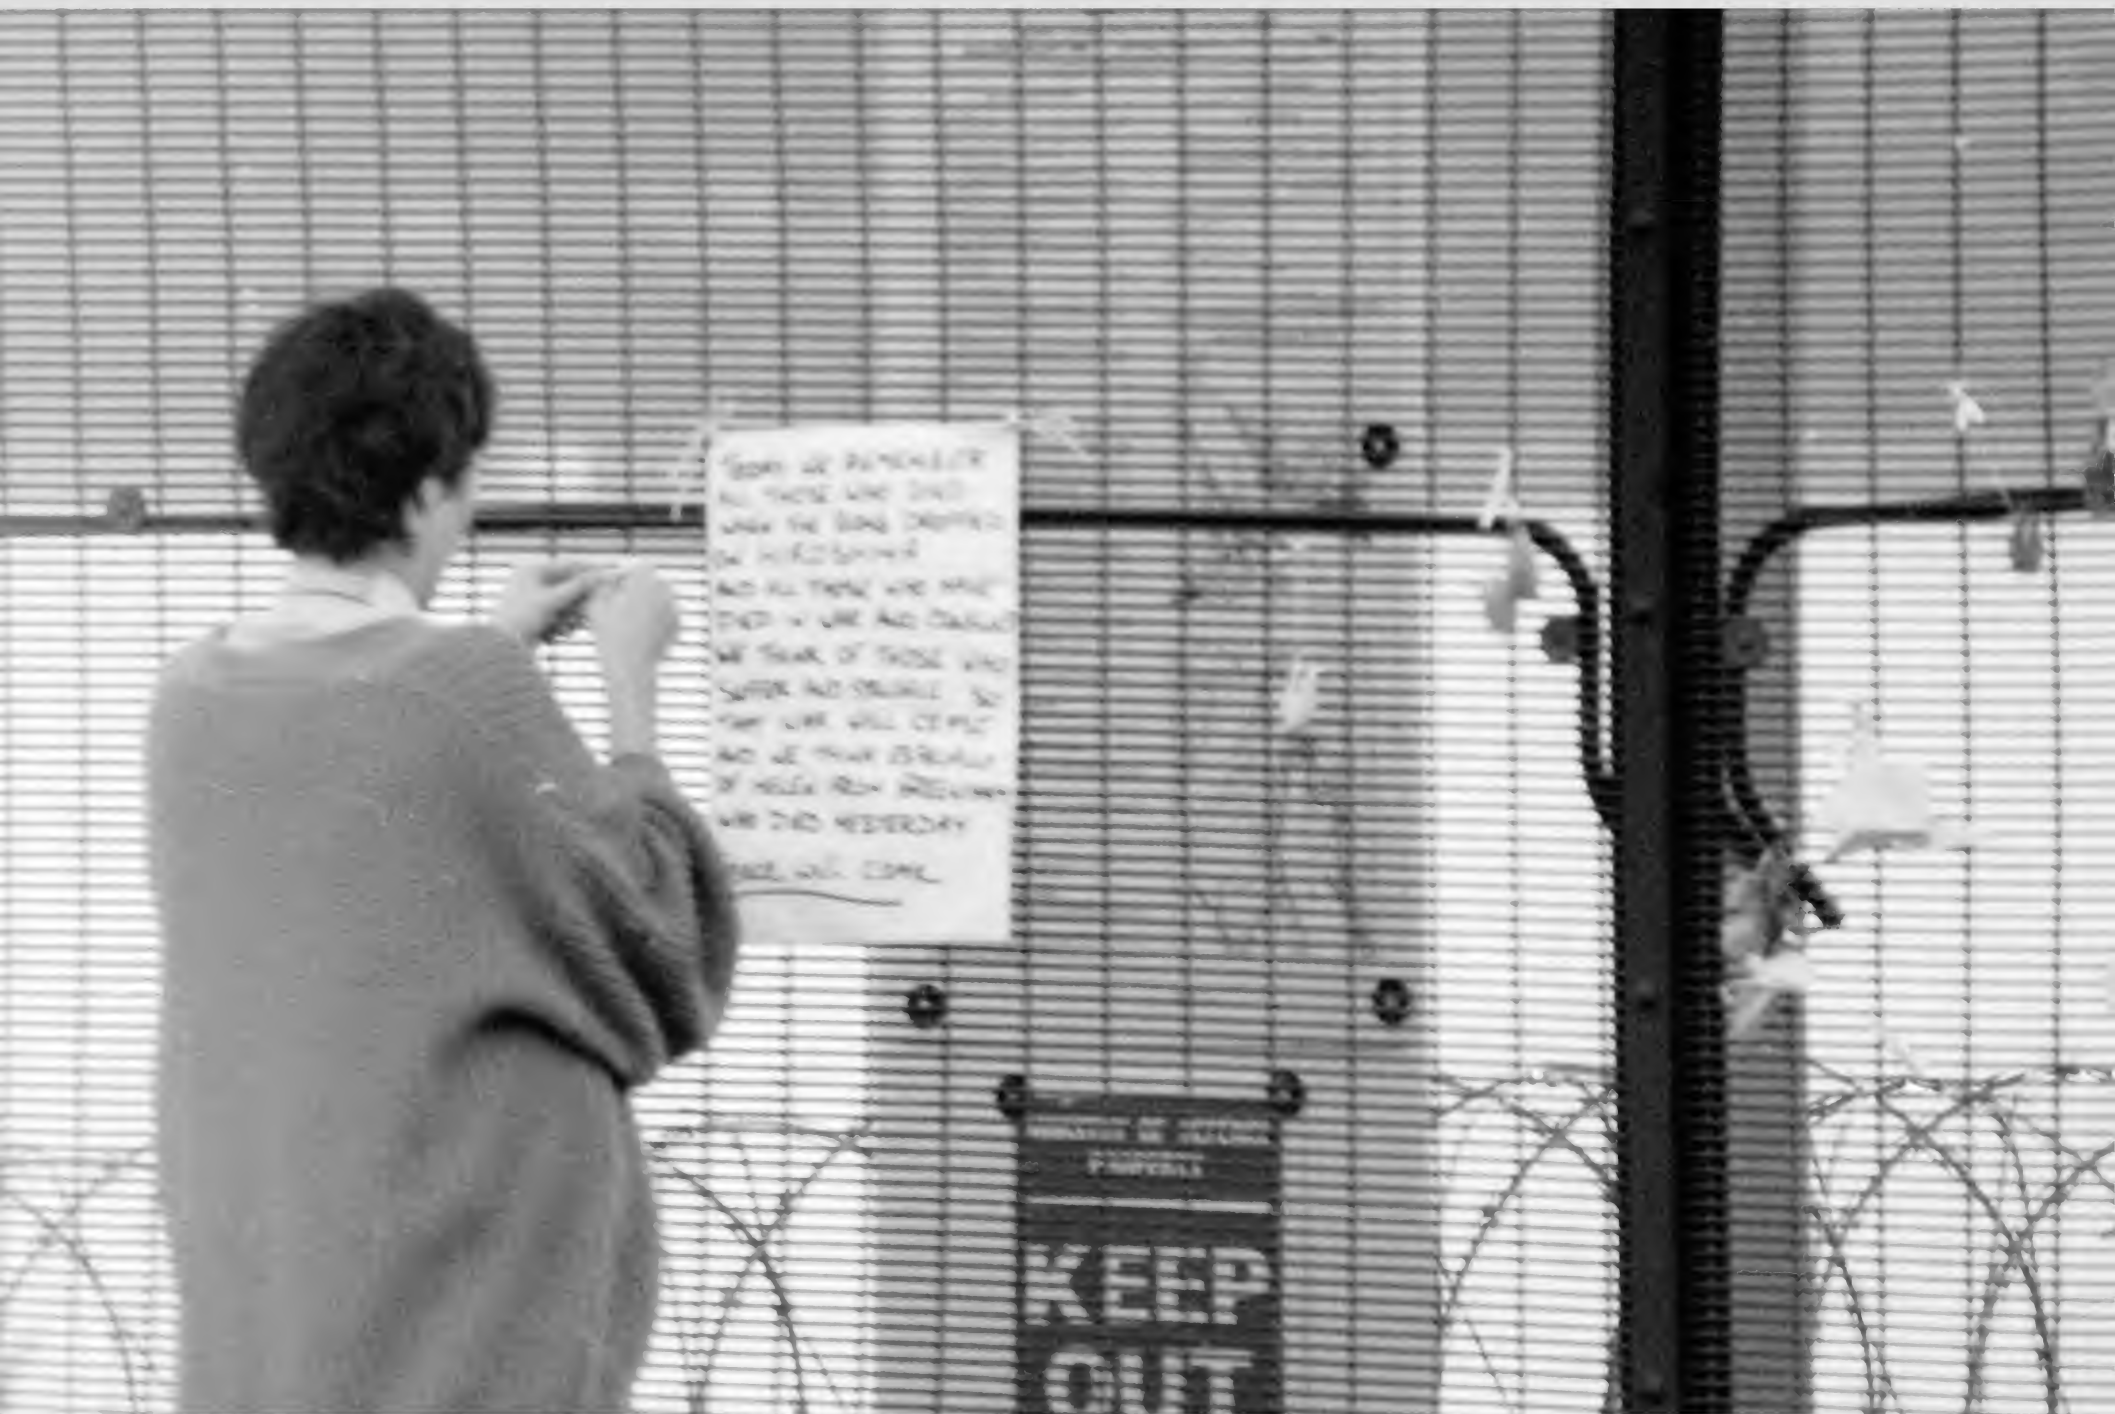 TODAY WE REMEMBER
ALL THOSE WHO DIED
WHEN THE BOMB DROPPED
ON HIROSHIMA
AND ALL THOSE WHO HAVE
DIED IN WAR AND
WE THINK OF THOSE WHO
SUFFER AND STRUGGLE SO
THAT WAR WILL CEASE
AND WE THINK ESPECIALLY
OF HELEN FROM GREENHAM
WHO DIED YESTERDAY
PEACE WILL COME
MINISTRY OF DEFENCE
PROPERTY
KEEP
OUT